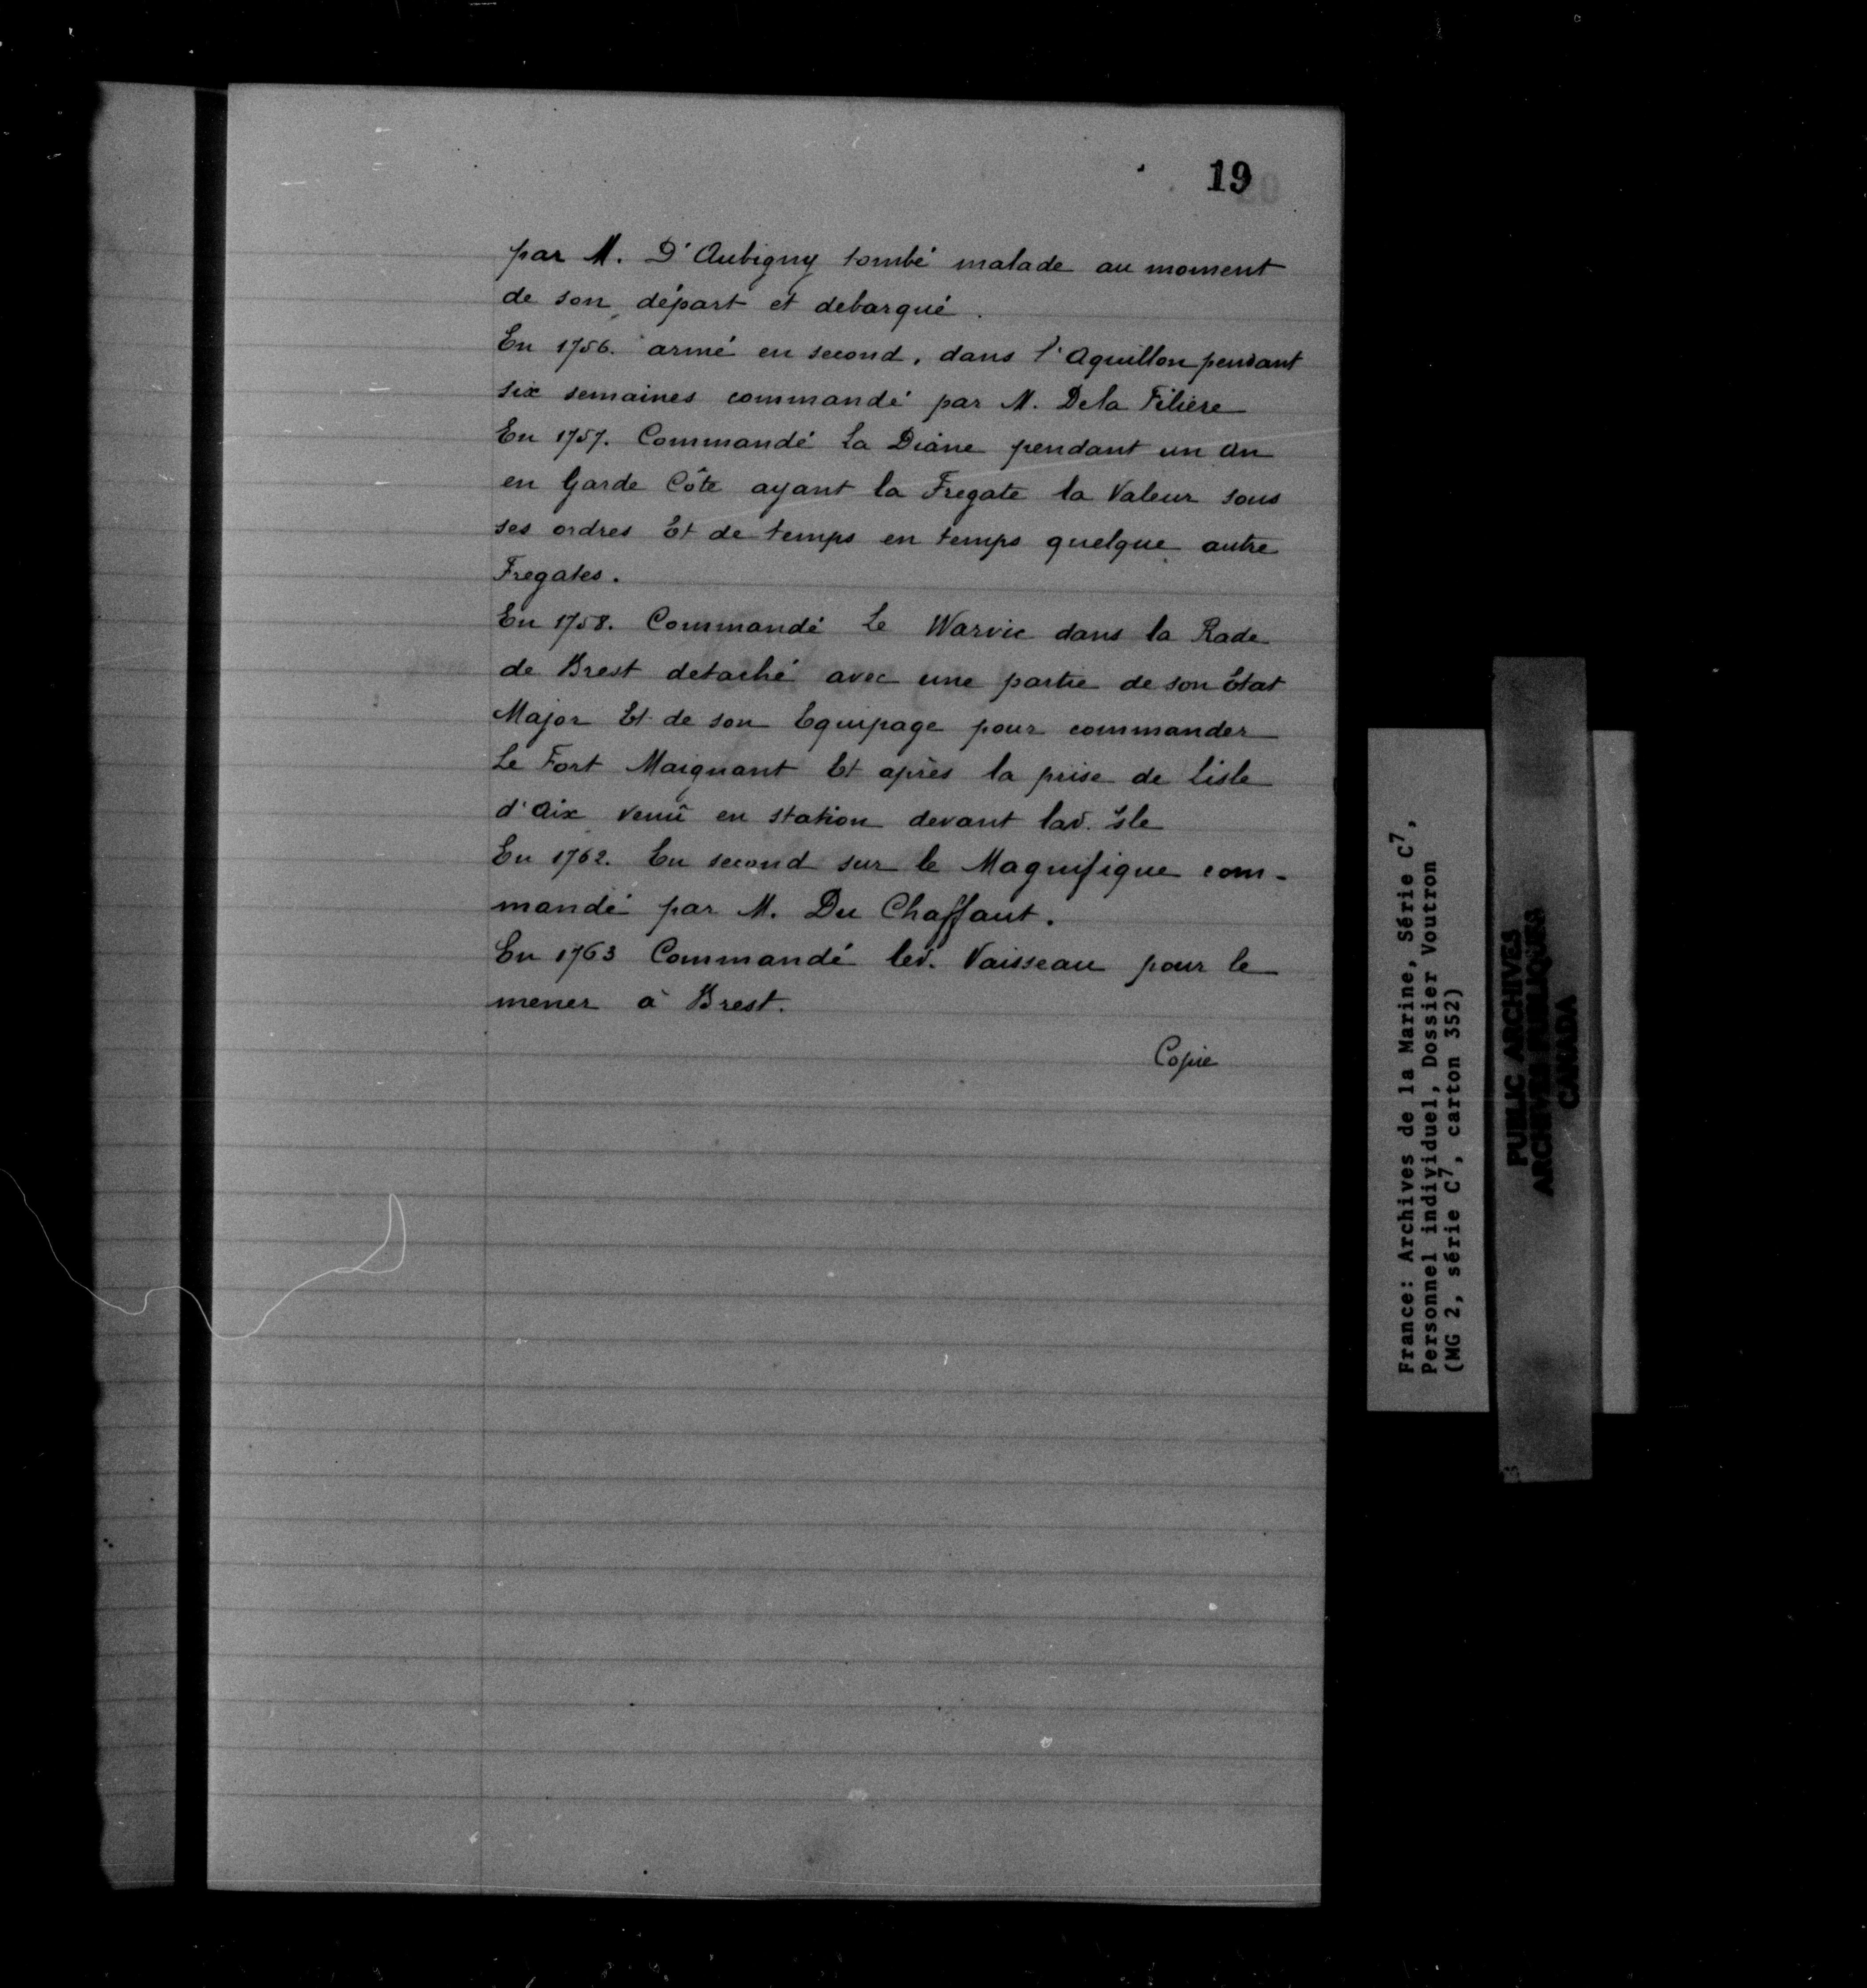 19
par M. D'Aubigny tombé malade au moment
de son départ et debarqué.
En 1756. armé en second, dans l'Aquillon pendant
six semaines commandé par M. De la Filiere
En 1757. Commandé La Diane pendant un An
en Garde Côte ayant la Fregate la Valeur sous
ses ordres Et de temps en temps quelque autre
Fregates.
En 1758. Commandé Le Warvic dans la Rade
de Brest detaché avec une partie de son Etat
Major Et de son Equipage pour commander
Le Fort Maignant Et après la prise de Lisle
d'Aix venû en station devant lad. Isle
En 1762. En second sur le Magnifique com-
mandé par M. Du Chaffaut.
En 1763 Commandé led. Vaisseau pour le
mener à Brest.
Copie
France: Archives de la Marine, Série C7,
Personnel individuel, Dossier Voutron
(MG 2, série C7, carton 352)
PUBLIC ARCHIVES
ARCHIVES PUBLIQUES
CANADA